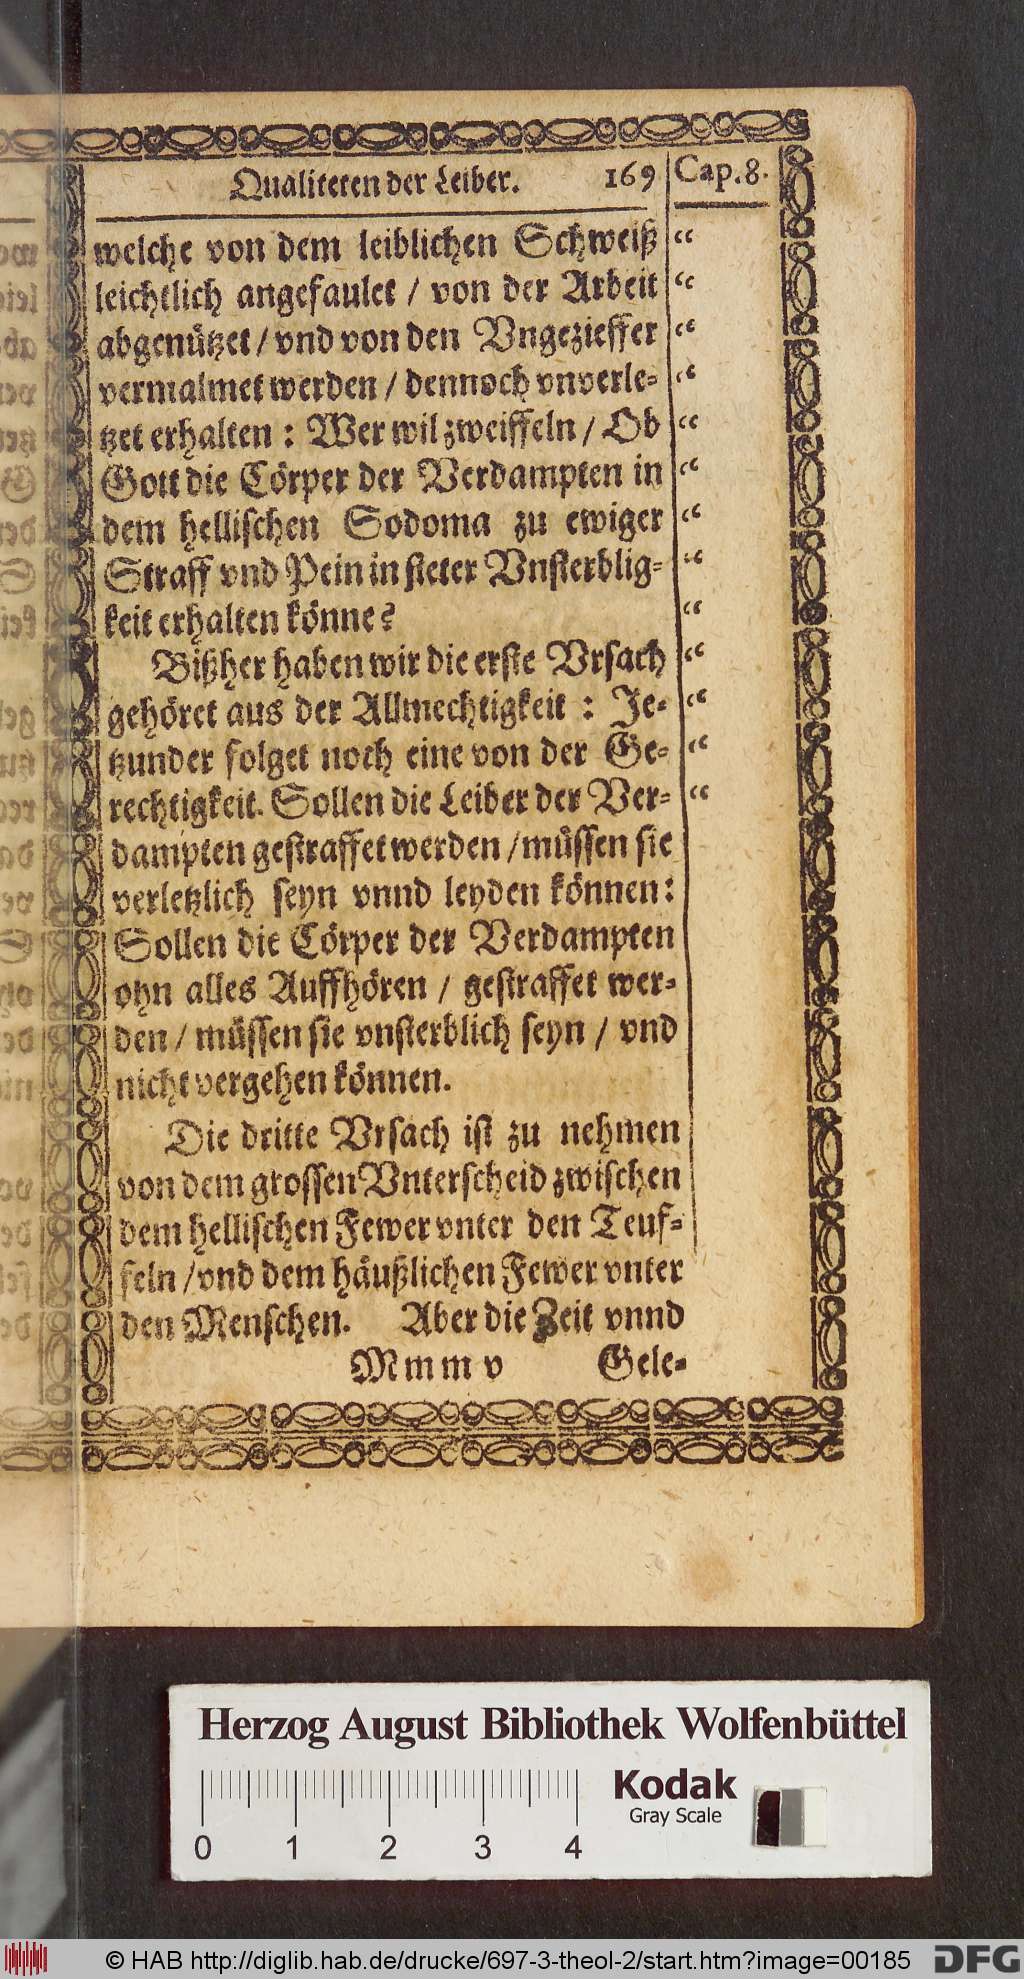 Qualiteten der Leiber. 169 Cap. 8.
welche von dem leiblichen Schweiß “
leichtlich angefaulet / von der Arbeit “
abgenützet / vnd von den Vngezieffer “
vermalmet werden / dennoch vnverle- “
tzet erhalten : Wer wil zweiffeln / Ob “
Gott die Cörper der Verdampten in “
dem hellischen Sodoma zu ewiger “
Straff vnd Pein in steter Vnsterblig- “
keit erhalten könne? “
Bißher haben wir die erste Vrsach “
gehöret aus der Allmechtigkeit : Je- “
tzunder folget noch eine von der Ge- “
rechtigkeit. Sollen die Leiber der Ver- “
dampten gestraffet werden / müssen sie
verletzlich seyn vnnd leyden können:
Sollen die Cörper der Verdampten
ohn alles Auffhören / gestraffet wer-
den / müssen sie vnsterblich seyn / vnd
nicht vergehen können.
Die dritte Vrsach ist zu nehmen
von dem grossen Vnterscheid zwischen
dem hellischen Fewer vnter den Teuf-
feln / vnd dem häußlichen Fewer vnter
den Menschen. Aber die Zeit vnnd
Mmm v Gele-
Herzog August Bibliothek Wolfenbüttel
Kodak
Gray Scale
0 1 2 3 4
© HAB http://diglib.hab.de/drucke/697-3-theol-2/start.htm?image=00185 DFG